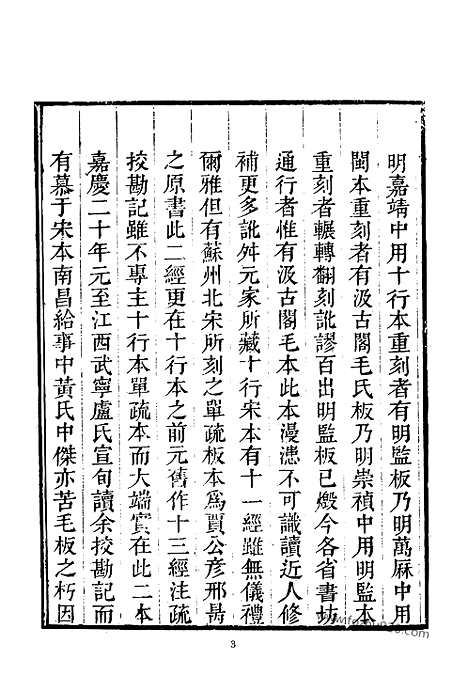 明嘉靖中用十行本重刻者有明監板乃明萬厤中用
閩本重刻者有汲古閣毛氏板乃明崇禎中用明監本
重刻者輾轉翻刻訛謬百出明監板已燬今各省書坊
通行者惟有汲古閣毛本此本漫漶不可識讀近人修
補更多訛舛元家所藏十行宋本有十一經雖無儀禮
爾雅但有蘇州北宋所刻之單疏板本爲賈公彥邢昺
之原書此二經更在十行本之前元舊作十三經注疏
挍勘記雖不專主十行本單疏本而大端實在此二本
嘉慶二十年元至江西武寧盧氏宣旬讀余挍勘記而
有慕于宋本南昌給事中黃氏中傑亦苦毛板之朽因
3